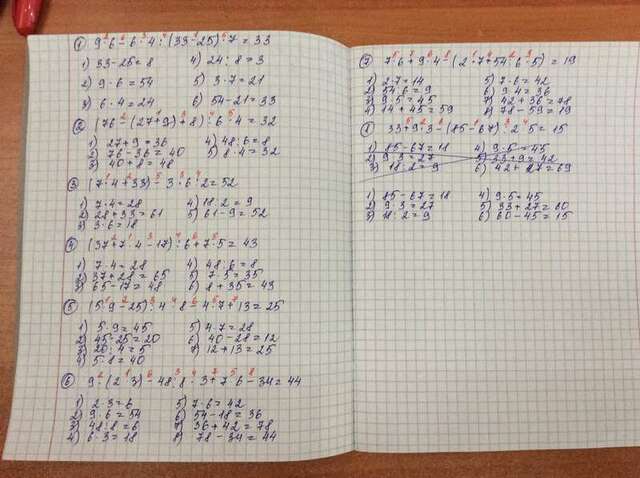 ① 9·6-6·4:(33-25)·7=33
1) 33-25=8 4) 24:8=3
2) 9·6=54 5) 3·7=21
3) 6·4=24 6) 54-21=33
② (76-(27+9)+8):6·4=32
1) 27+9=36 4) 48:6=8
2) 76-36=40 5) 8·4=32
3) 40+8=48
③ (7·4+33)-3·6:2=52
1) 7·4=28 4) 18:2=9
2) 28+33=61 5) 61-9=52
3) 3·6=18
④ (37+7·4-17):6+7·5=43
1) 7·4=28 4) 48:6=8
2) 37+28=65 5) 7·5=35
3) 65-17=48 6) 8+35=43
⑤ (5·9-25):4·8-4·7+13=25
1) 5·9=45 5) 4·7=28
2) 45-25=20 6) 40-28=12
3) 20:4=5 7) 12+13=25
4) 5·8=40
⑥ 9·(2·3)-48:8·3+7·6-34=44
1) 2·3=6 5) 7·6=42
2) 9·6=54 6) 54-18=36
3) 48:8=6 7) 36+42=78
4) 6·3=18 8) 78-34=44
⑦ 7·6+9·4-(2·7+54:6·5)=19
1) 2·7=14 5) 7·6=42
2) 54:6=9 6) 9·4=36
3) 9·5=45 7) 42+36=78
4) 14+45=59 8) 78-59=19
⑧ 33+9·3-(85-67):2·5=15
1) 85-67=18 4) 9·5=45
2) 9·3=27 5) 33+9=42
3) 18:2=9 6) 42+27=69
1) 85-67=18 4) 9·5=45
2) 9·3=27 5) 33+27=60
3) 18:2=9 6) 60-45=15